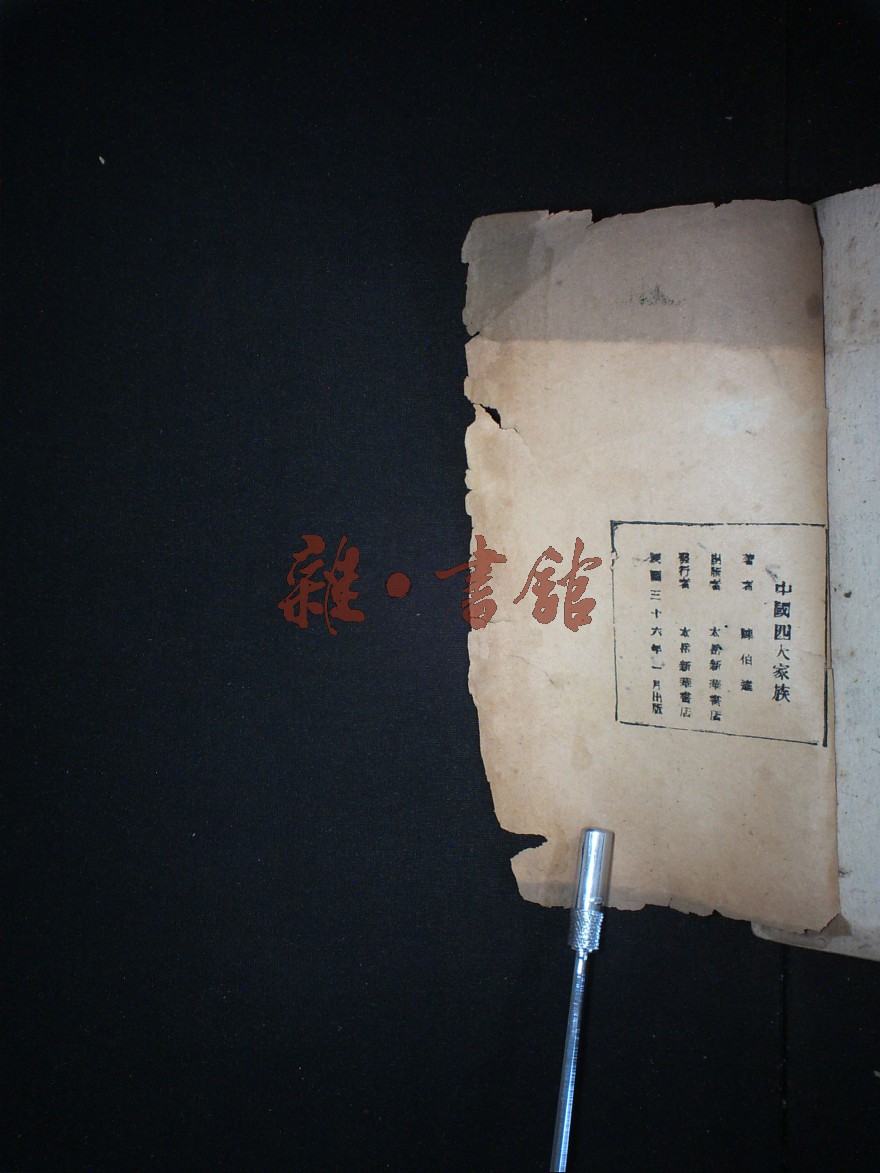 中國四大家族
著者 陳伯達
出版者 太岳新華書店
發行者 太岳新華書店
民國三十六年一月出版
雜·書館